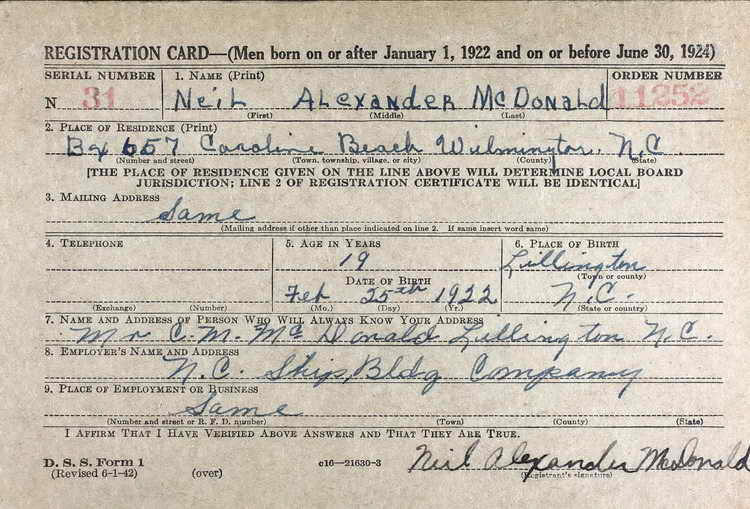 REGISTRATION CARD—(Men born on or after January 1, 1922 and on or before June 30, 1924)
SERIAL NUMBER 1. NAME (Print) ORDER NUMBER
N 31 NEIL ALEXANDER McDONALD 11252
(First) (Middle) (Last)
2. PLACE OF RESIDENCE (Print)
Bx 657 Caroline Beach Wilmington, N.C.
(Number and street) (Town, township, village, or city) (County) (State)
[THE PLACE OF RESIDENCE GIVEN ON THE LINE ABOVE WILL DETERMINE LOCAL BOARD
JURISDICTION; LINE 2 OF REGISTRATION CERTIFICATE WILL BE IDENTICAL]
3. MAILING ADDRESS
Same
(Mailing address if other than place indicated on line 2. If same insert word same)
4. TELEPHONE 5. AGE IN YEARS 6. PLACE OF BIRTH
19 Lillington
DATE OF BIRTH (Town or county)
Feb 25th 1922 N.C.
(Exchange) (Number) (Mo.) (Day) (Yr.) (State or country)
7. NAME AND ADDRESS OF PERSON WHO WILL ALWAYS KNOW YOUR ADDRESS
Mr C. M. McDonald Lillington N.C.
8. EMPLOYER'S NAME AND ADDRESS
N.C. Ship Bldg Company
9. PLACE OF EMPLOYMENT OR BUSINESS
Same
(Number and street or R. F. D. number) (Town) (County) (State)
I AFFIRM THAT I HAVE VERIFIED ABOVE ANSWERS AND THAT THEY ARE TRUE.
D. S. S. Form 1 Neil Alexander McDonald
(Revised 6-1-42) (over) c16—21630-3 (Registrant's signature)